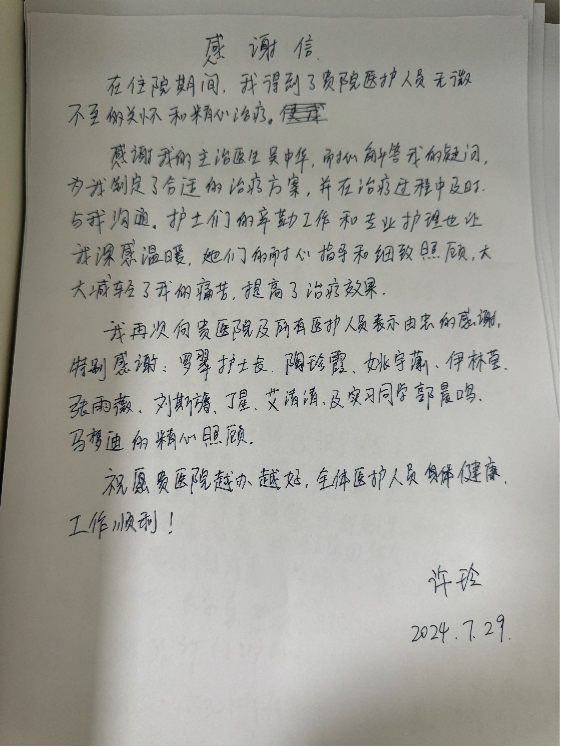 感谢信
在住院期间，我得到了贵院医护人员无微
不至的关怀和精心治疗。
感谢我的主治医生吴中华，耐心解答我的疑问，
为我制定了合适的治疗方案，并在治疗过程中及时
与我沟通。护士们的辛勤工作和专业护理也让
我深感温暖，她们的耐心指导和细致照顾，大
大减轻了我的痛苦，提高了治疗效果.
我再次向贵医院及所有医护人员表示由衷的感谢，
特别感谢：罗翠护士长、陶珍霞、姚宇薇、伊林莹、
张雨薇、刘斯璐、丁星、艾清清、及实习同学郭晨鸣、
马梦迪的精心照顾.
祝愿贵医院越办越好，全体医护人员身体健康，
工作顺利！
许玲
2024.7.29.